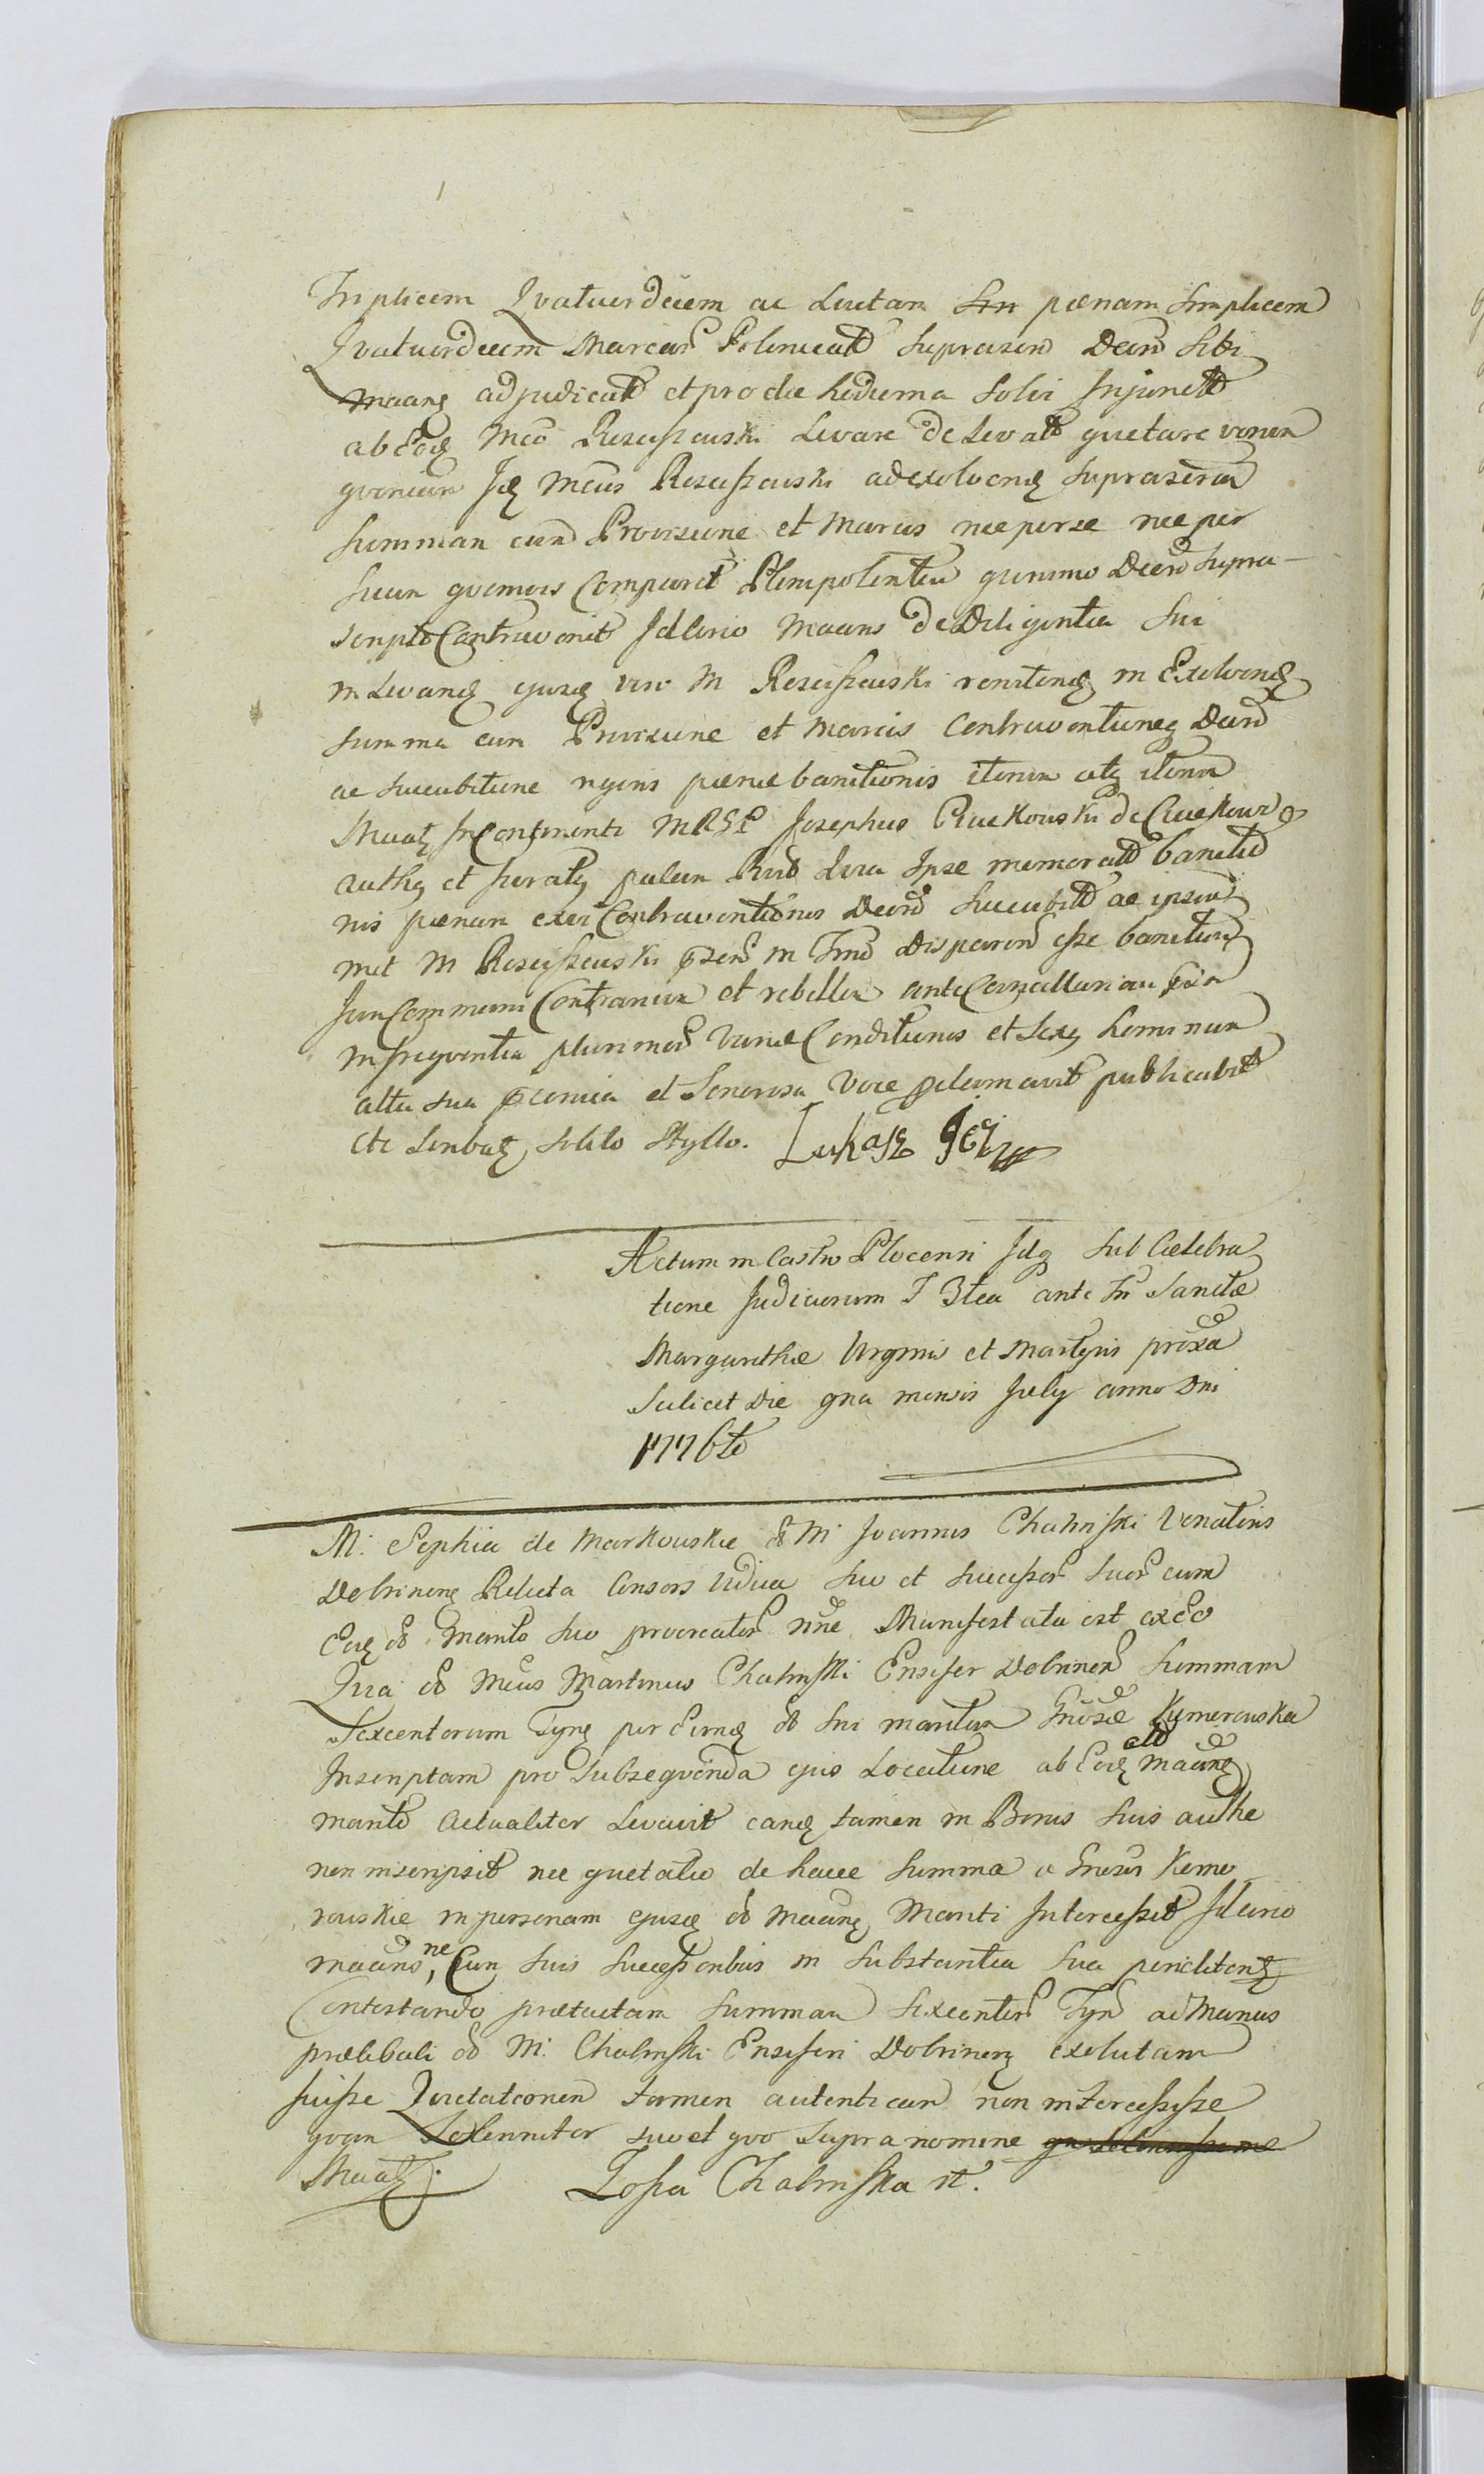 Triplicem Qvatuordecem ac Luctam Sin pœnam simplicem
Qvatuordecem Marcar Polonical suprascrip Decro Sibi
maanq adjudicat et pro die hodierna Solvi Injunctt
ab Eodq Mco Rosciszewski Levare de levatt quetare venen
qvoniam Idq Mcus Rosciszewski ad exolvenq suprascrip
Summam cum Provisione et Marcis nec per se nec per
suum qvemvis Comparet Plenipotentem qvinimo Decro supra-
scripto Contravenit Idcirco Maans de Diligentia sui
in Levanq ejusq vero M Rosciszewski reniteng in Exolvenq
Summa cum Provisione et Marcis Contraventioneq Decro
ac succubitione rigoris pœnæ banitionis iterum atq iterum
Maatq In Continenti MRSP Josephus Ciuckowski de Ciuckowo
authq et juratq palam Reco Lica Ipse memoratt banitio
nis pœnam exvi Contraventionis Decro Succubitt ac ipsum
met M Rosciszewski in Trno Disparen esse banitum
Jur Communi Contrarium et rebellem ante Cancellariam
in freqventia plurimor Variæ Conditionis et Sexq hominum
alta sua et Sonorosa Voce proclamavit publicavit
Sribatq solito Styllo. Łukasz
Actum in Castro Plocensi Idq Sub Cælebra
tione Judiciorum F 3tia ante Fn Sanctæ
Margarithæ Virginis et Martyris proxa
Scilicet Die gna mensis July anno Dni
1776to
M. Sophia de Markowskie M Joannis Chalinski Venatoris
Dobrinenq Relicta Consors Vidua suo et Successor suor cum
Eodq marito suo procreator nne Manifestata est ex eo
Qvia Mcus Martinus Chalinski Ensifer Dobrinen Summam
Sexcentorum Tynq per Eumq sui maritum Gnosæ Kymerowska
Inscriptam pro Subseqvenda ejus Locatione ab Eodq Maanq
marito actualiter Levavit eanq tamen in Bonis suis authe
non inscripsit nec quetatio de hacce Summa a Gnosis Kemo
rowskie in personam ejusq Maanq Mariti Intercessit Idcirco
maans, ne Cum suis Successoribus in Substantia sua periclitenq
Contestando prætactam Summam Sexcentor Tyn ad Manus
prælibati M. Chalinski Ensiferi Dobrinenq exolutam
fuisse Qvietationem tamen autenticam non intercessisse
qvam Solenniter suo et qvo supra nomine
Maatq. Zofia Chalinska